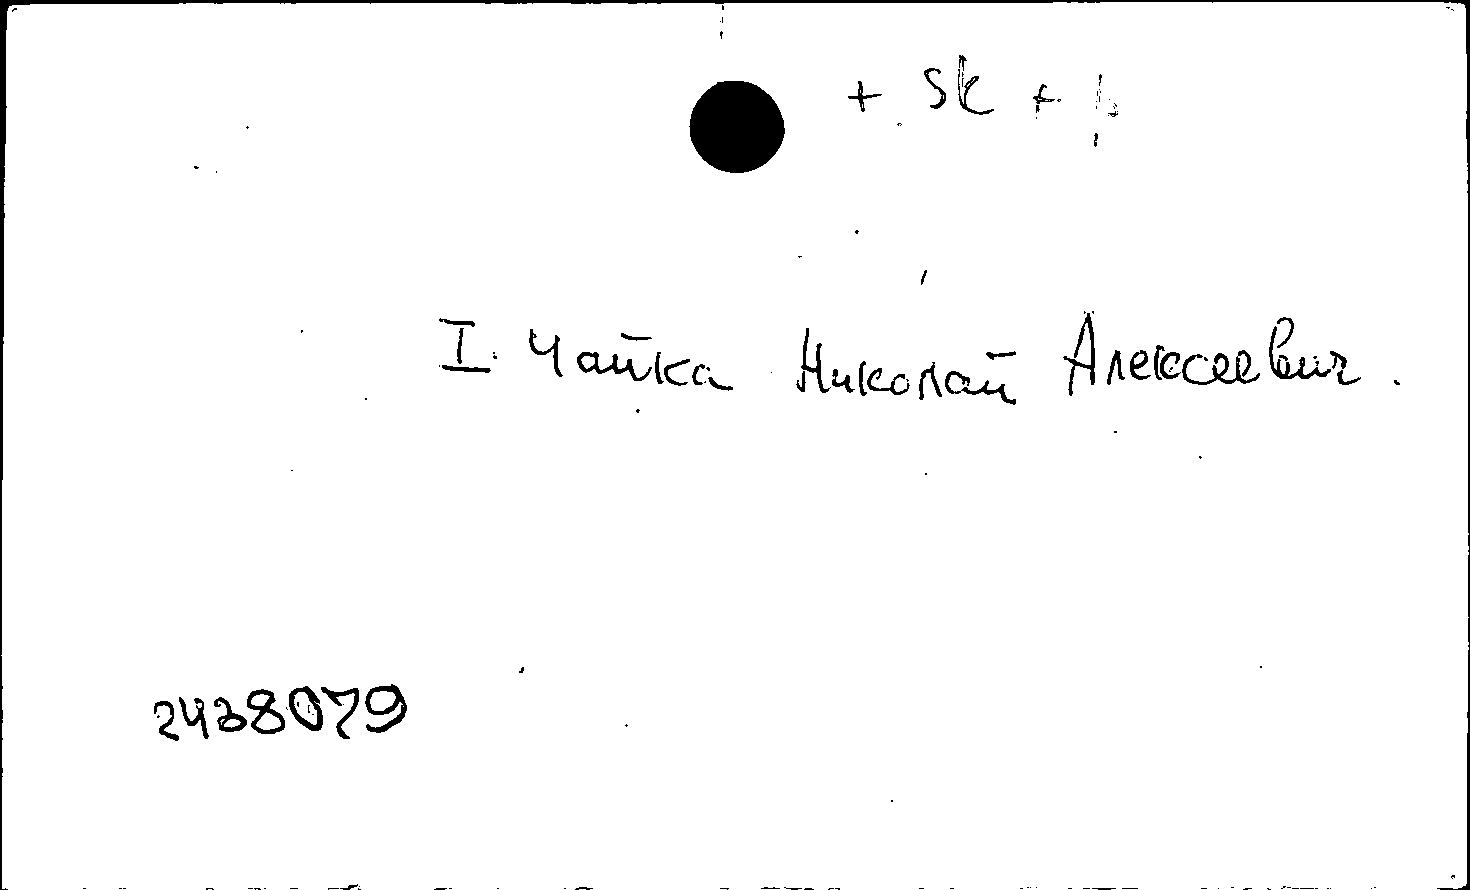 + sk +
I. Чайка Николай Алексеевич.
2438079